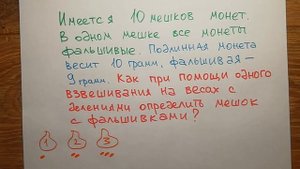 Имеется 10 мешков монет.
В одном мешке все монеты
фальшивые. Подлинная монета
весит 10 грамм, фальшивая –
9 грамм. Как при помощи одного
взвешивания на весах с
делениями определить мешок
с фальшивками?
1 2 3